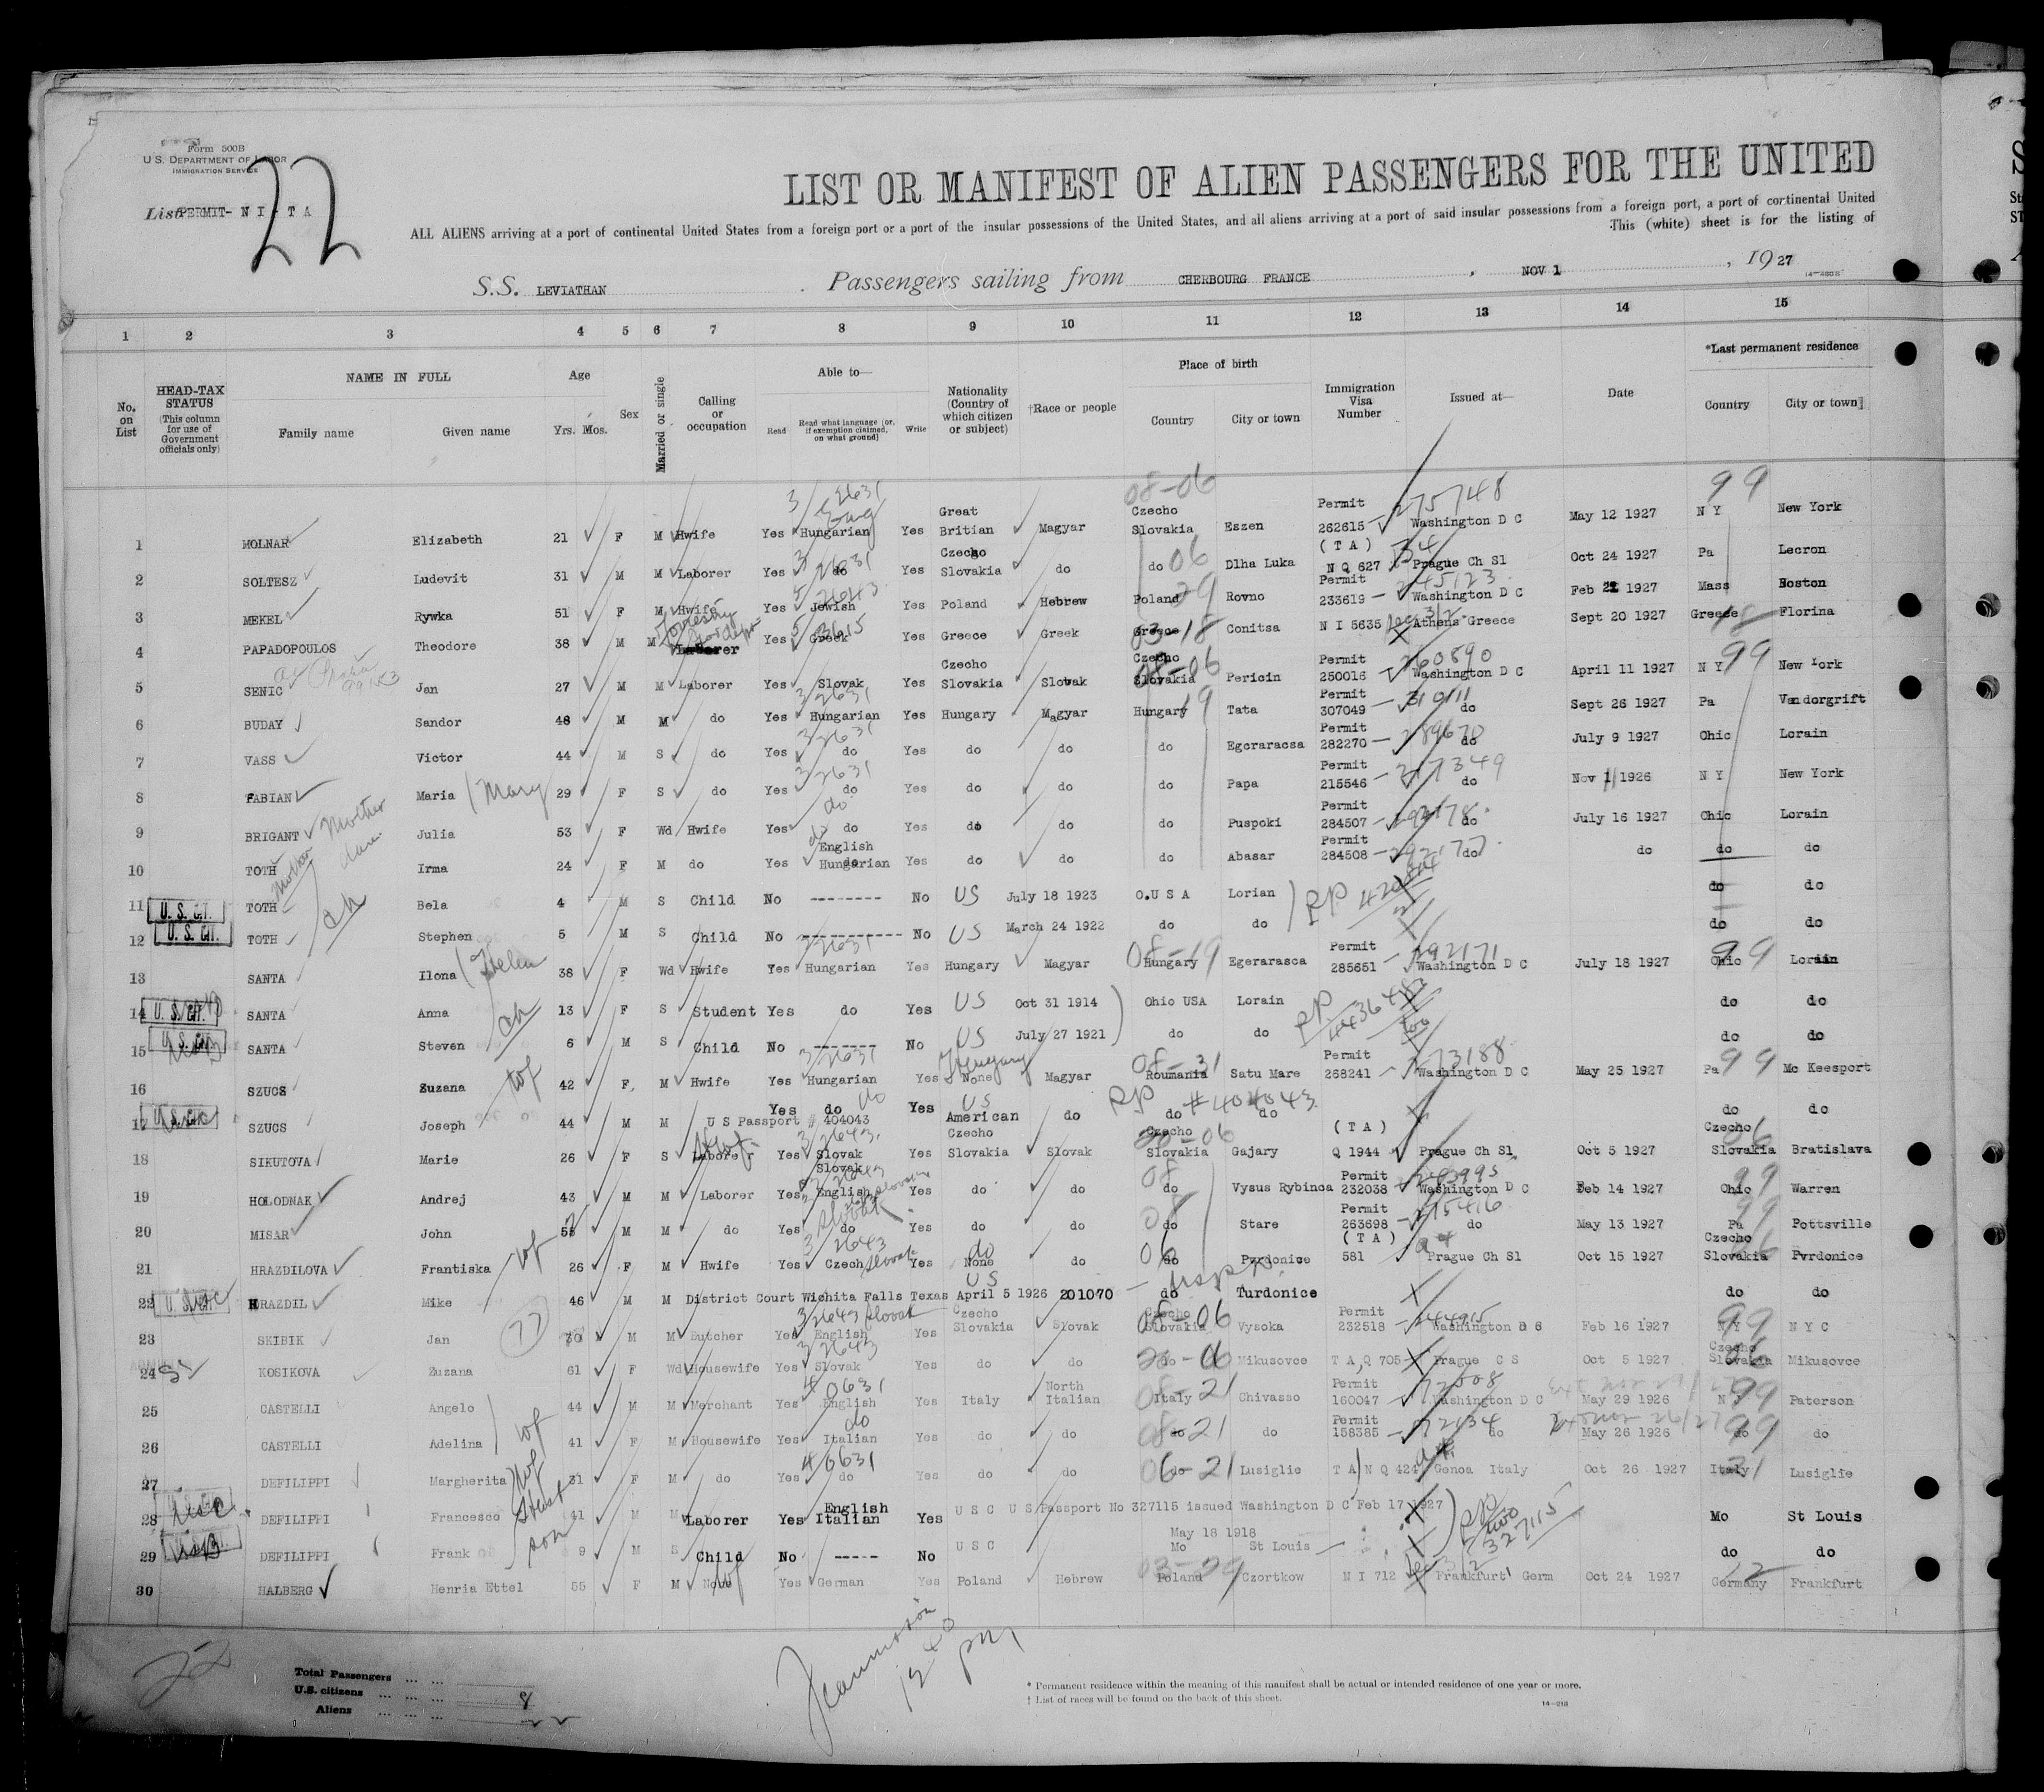 Form 500B
U. S. DEPARTMENT OF LABOR
IMMIGRATION SERVICE
List PERMIT- N I - T A
22
LIST OR MANIFEST OF ALIEN PASSENGERS FOR THE UNITED
ALL ALIENS arriving at a port of continental United States from a foreign port or a port of the insular possessions of the United States, and all aliens arriving at a port of said insular possessions from a foreign port, a port of continental United
This (white) sheet is for the listing of
S.S. LEVIATHAN Passengers sailing from CHERBOURG FRANCE , NOV 1 , 1927
1 2 3 4 5 6 7 8 9 10 11 12 13 14 15
No. on List HEAD-TAX STATUS (This column for use of Government officials only) NAME IN FULL Family name Given name Age Yrs. Mos. Sex Married or single Calling or occupation Able to— Read Read what language (or, if exemption claimed, on what ground) Write Nationality (Country of which citizen or subject) †Race or people Place of birth Country City or town Immigration Visa Number Issued at— Date *Last permanent residence Country City or town
1 MOLNAR Elizabeth 21 F M Hwife Yes Hungarian Yes Great Britian Magyar Czecho Slovakia Eszen Permit 262615 275748 Washington D C May 12 1927 N Y New York
2 SOLTESZ Ludevit 31 M M Laborer Yes do Yes Czecho Slovakia do do 06 Dlha Luka (TA) N Q 627 Prague Ch Sl Oct 24 1927 Pa Lecron
3 MEKEL Rywka 51 F M Hwife Yes Jewish Yes Poland Hebrew Poland Rovno Permit 233619 245123 Washington D C Feb 21 1927 Mass Boston
4 PAPADOPOULOS Theodore 38 M M Laborer Yes Greek Yes Greece Greek Greece Conitsa N I 5635 Athens Greece Sept 20 1927 Greece Florina
5 SENIC Jan 27 M M Laborer Yes Slovak Yes Czecho Slovakia Slovak Czecho Slovakia Pericin Permit 250016 260890 Washington D C April 11 1927 N Y New York
6 BUDAY Sandor 48 M M do Yes Hungarian Yes Hungary Magyar Hungary Tata Permit 307049 310111 do Sept 26 1927 Pa Vandorgrift
7 VASS Victor 44 M S do Yes do Yes do do do Egeraracsa Permit 282270 289670 do July 9 1927 Ohio Lorain
8 FABIAN Maria (Mary 29 F S do Yes do Yes do do do Papa Permit 215546 217349 do Nov 1 1926 N Y New York
9 BRIGANT Mother Julia 53 F Wd Hwife Yes do Yes do do do Puspoki Permit 284507 292178 do July 16 1927 Ohio Lorain
10 TOTH Irma 24 F M do Yes English Hungarian Yes do do do Abasar Permit 284508 292177 do do do do
11 U. S. CIT. TOTH Bela 4 M S Child No -------- No US July 18 1923 O.U S A Lorian do do
12 U. S. CIT. TOTH ch Stephen 5 M S Child No ----------- No US March 24 1922 do do do do
13 SANTA Ilona (Helen 38 F Wd Hwife Yes Hungarian Yes Hungary Magyar Hungary Egerarasca Permit 285651 292171 Washington D C July 18 1927 Ohio Lorain
14 U. S. CIT. SANTA Anna ch 13 F S Student Yes do Yes US Oct 31 1914 Ohio USA Lorain do do
15 U. S. CIT. SANTA Steven 6 M S Child No -------- No US July 27 1921 do do do do
16 SZUCS Zuzana wf 42 F M Hwife Yes Hungarian Yes None Hungary Magyar Roumania Satu Mare Permit 268241 273188 Washington D C May 25 1927 Pa Mc Keesport
17 U. S. CIT. SZUCS Joseph 44 M M U S Passport # 404043 Yes do Yes US American do do do RP #404043 do do
18 SIKUTOVA Marie 26 F S Laborer Yes Slovak Yes Czecho Slovakia Slovak Czecho Slovakia Gajary (TA) Q 1944 Prague Ch Sl. Oct 5 1927 Czecho Slovakia Bratislava
19 HOLODNAK Andrej 43 M M Laborer Yes Slovak English Yes do do do Vysus Rybinca Permit 232038 Washington D C Feb 14 1927 Ohio Warren
20 MISAR John M M do Yes do Yes do do do Stare Permit 263698 275416 do May 13 1927 Pa Pottsville
21 HRAZDILOVA Frantiska wf 26 F M Hwife Yes Czech Slovak Yes None do do do Pvrdonice (TA) 581 Prague Ch Sl Oct 15 1927 Czecho Slovakia Pvrdonice
22 HRAZDIL Mike 46 M M District Court Wichita Falls Texas April 5 1926 201070 US do Turdonice do do
23 SKIBIK Jan 30 M M Butcher Yes English Slovak Yes Czecho Slovakia Slovak Czecho Slovakia Vysoka Permit 232518 Washington Feb 16 1927 N Y N Y C
24 KOSIKOVA Zuzana 61 F Wd Housewife Yes Slovak Yes do do do Mikusovce T A Q 705 Prague C S Oct 5 1927 Czecho Slovakia Mikusovce
25 CASTELLI Angelo 44 M M Merchant Yes English Yes Italy North Italian Italy Chivasso Permit 160047 Washington D C May 29 1926 N Paterson
26 CASTELLI Adelina wf 41 F M Housewife Yes Italian Yes do do do do Permit 158385 72134 do May 26 1926 do do
27 DEFILIPPI Margherita wf 31 F M do Yes do Yes do do do Lusiglie T A N Q 424 Genoa Italy Oct 26 1927 Italy Lusiglie
28 DEFILIPPI Francesco 41 M M Laborer Yes English Italian Yes U S C U S Passport No 327115 issued Washington D C Feb 17 1927 Mo St Louis
29 DEFILIPPI Frank son 9 M S Child No ----- No U S C May 18 1918 Mo St Louis 327115 do do
30 HALBERG Henria Ettel 55 F M None Yes German Yes Poland Hebrew Poland Czortkow N I 712 Frankfurt Germ Oct 24 1927 Germany Frankfurt
22
Total Passengers
U.S. citizens 8
Aliens 22
1240 pm
* Permanent residence within the meaning of this manifest shall be actual or intended residence of one year or more.
† List of races will be found on the back of this sheet.
14—213